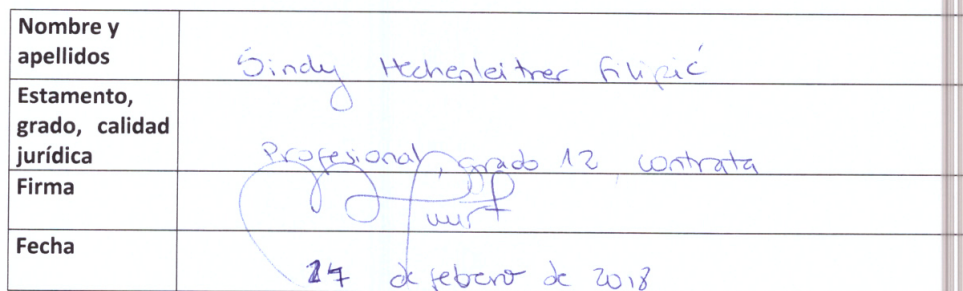 Nombre y
apellidos
Sindy Hechenleitner Filipić
Estamento,
grado, calidad
jurídica
Profesional, grado 12 contrata
Firma
Fecha
de febrero de 2018